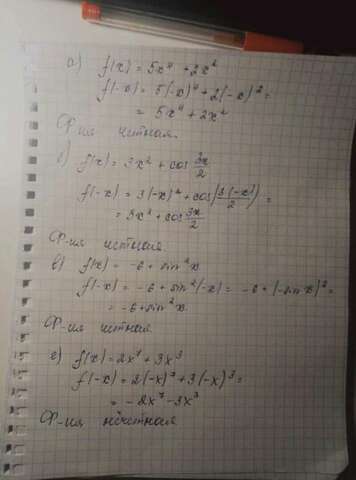 а) f(x) = 5x⁴ + 2x²
f(-x) = 5(-x)⁴ + 2(-x)² =
= 5x⁴ + 2x²
Ф-ия четная.
б) f(x) = 3x² + cos 3x/2
f(-x) = 3(-x)² + cos(3(-x)/2) =
= 3x² + cos 3x/2
Ф-ия четная
в) f(x) = -6 + sin²x
f(-x) = -6 + sin²(-x) = -6 + (-sin x)² =
= -6 + sin²x
Ф-ия четная
г) f(x) = 2x⁷ + 3x³
f(-x) = 2(-x)⁷ + 3(-x)³ =
= -2x⁷ - 3x³
Ф-ия нечетная